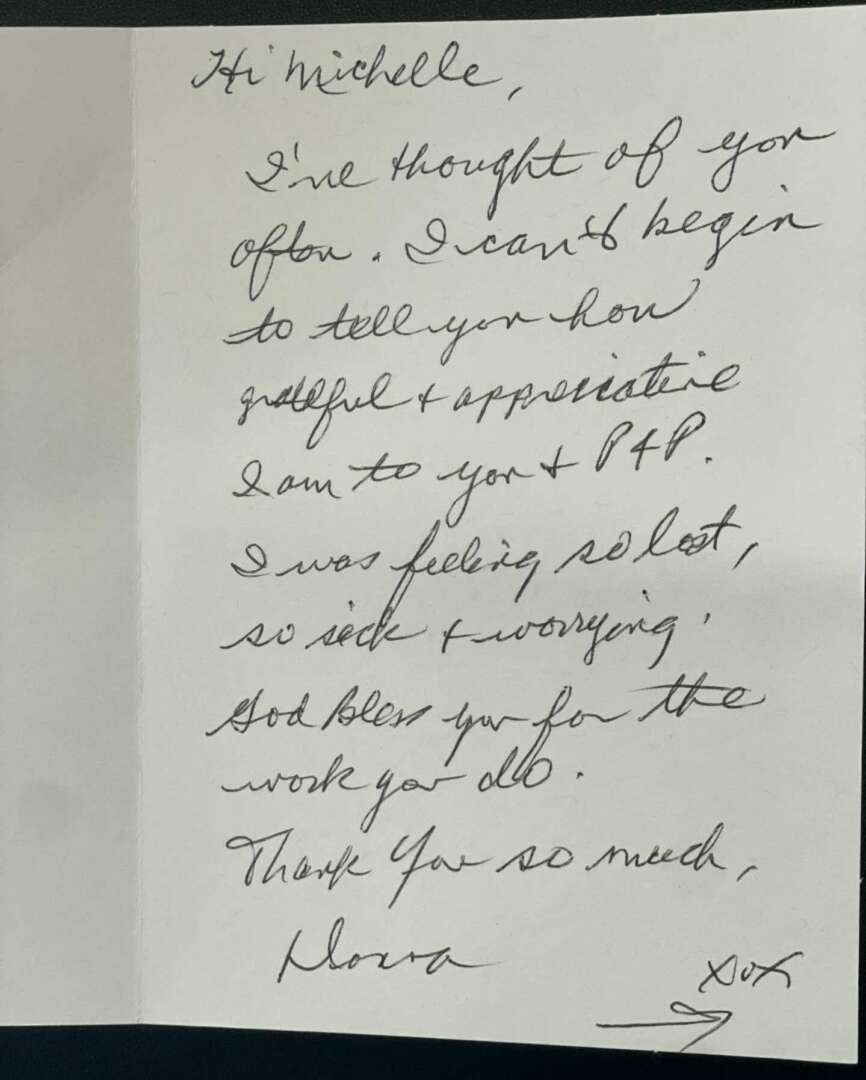 Hi Michelle,
I've thought of you
often. I can't begin
to tell you how
grateful & appreciative
I am to you & P&P.
I was feeling so lost,
so sick & worrying.
God Bless you for the
work you do.
Thank You so much,
Donna
xox